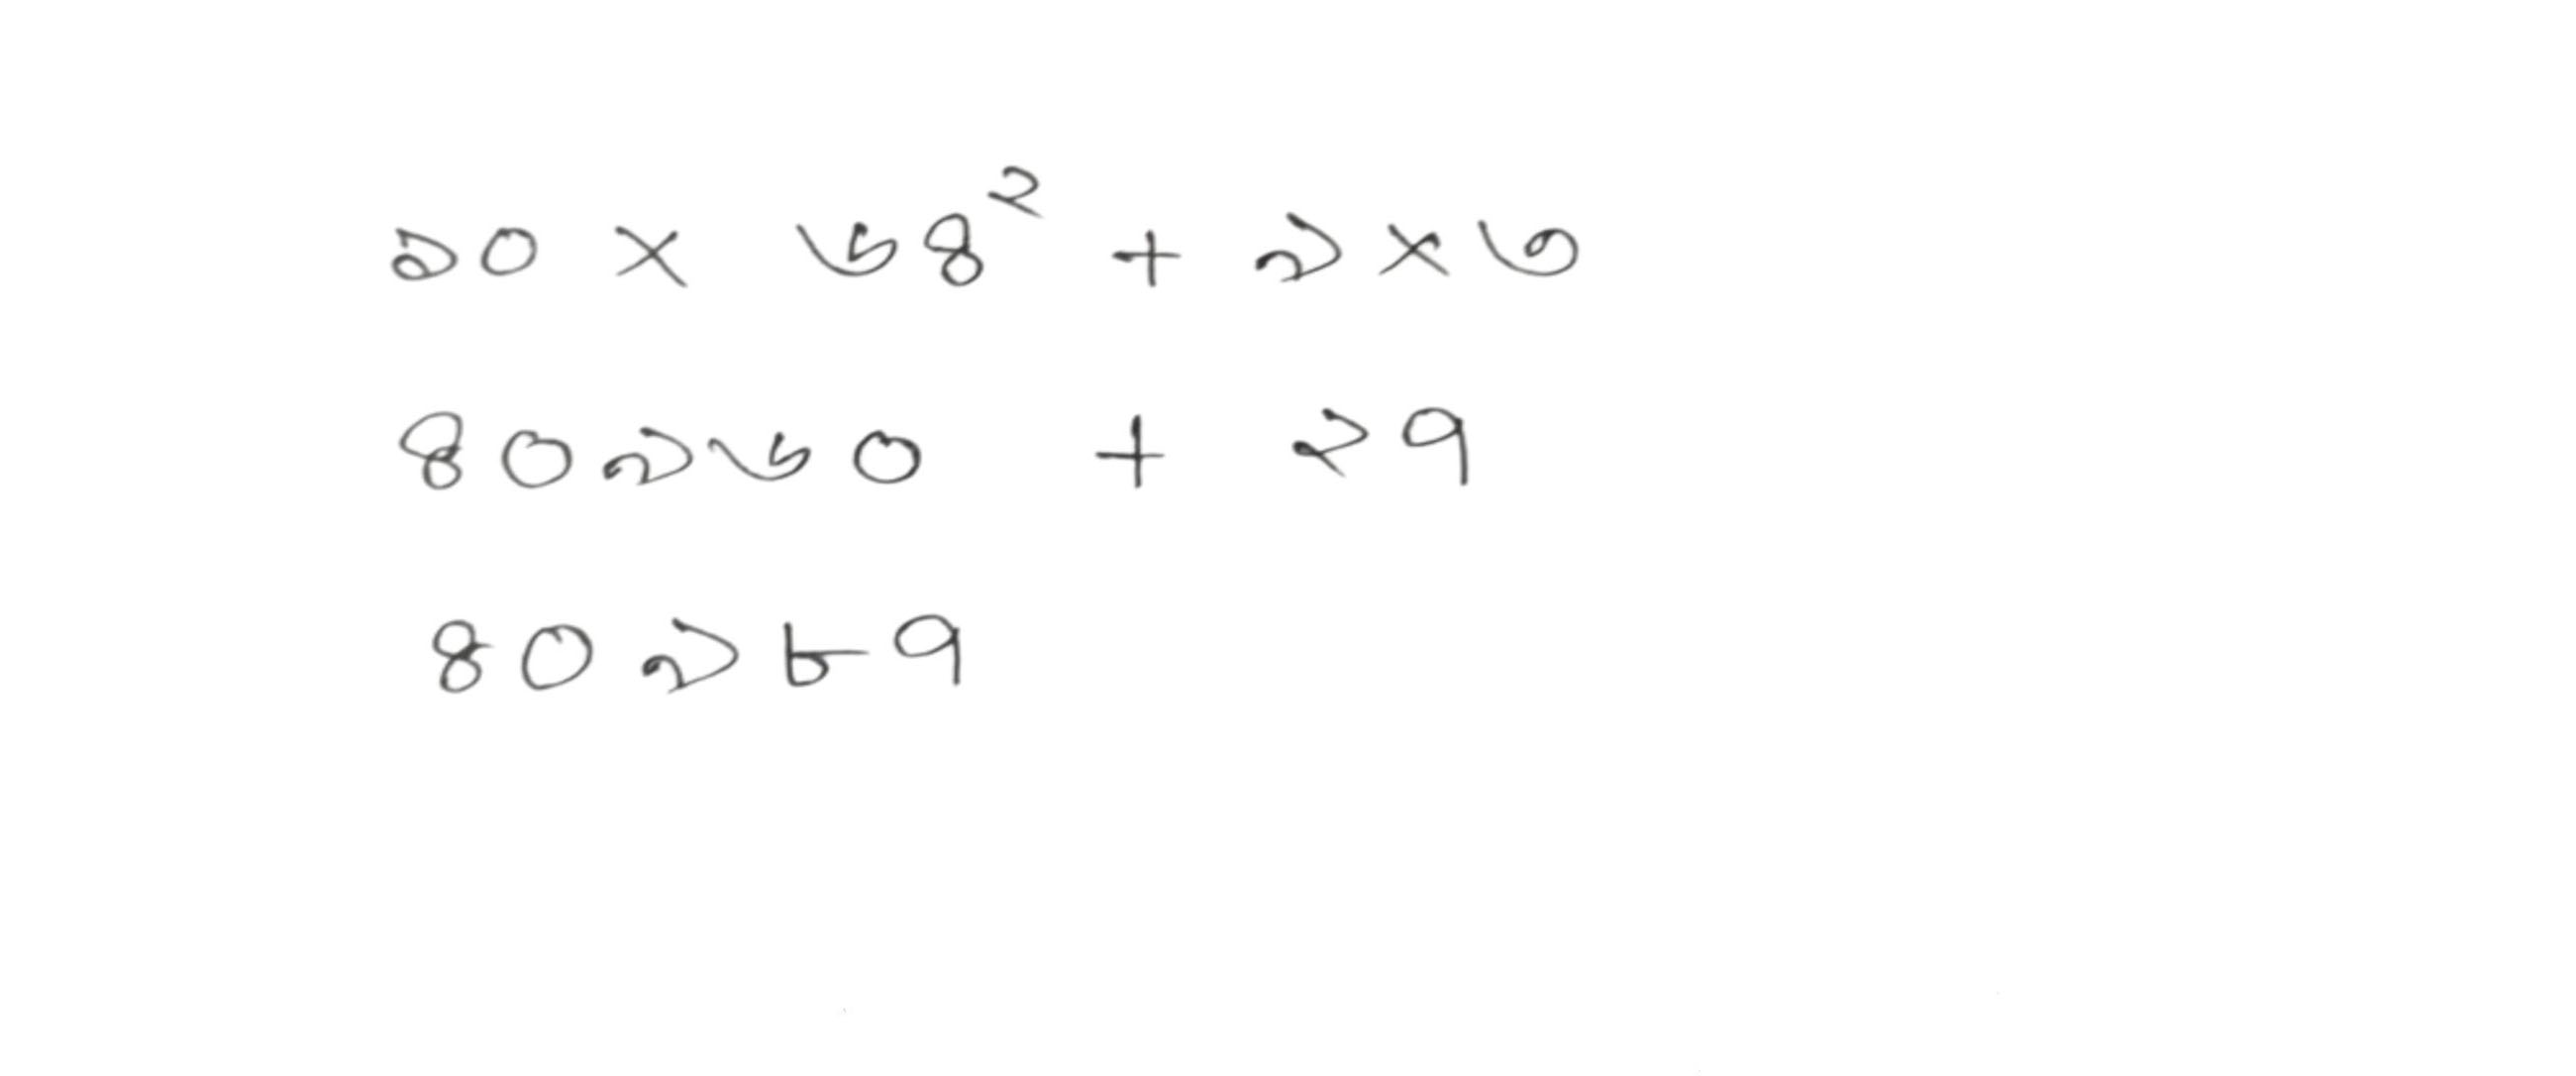 ১০ × ৬৪² + ৯ × ৩
৪০৯৬০ + ২৭
৪০৯৮৭